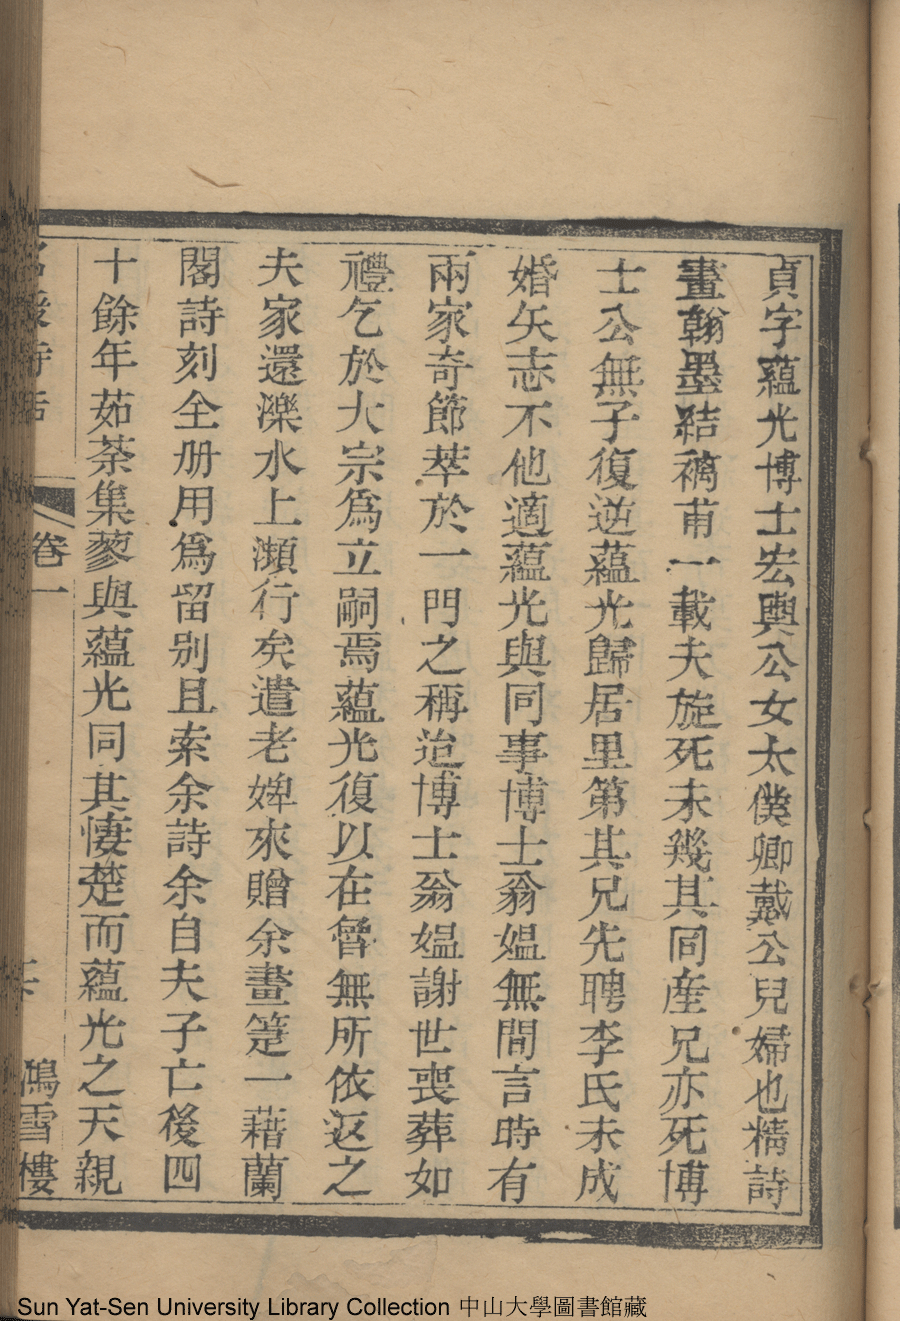 貞字蘊光博士宏輿公女太僕卿戴公兒婦也精詩
畫翰墨結褵甫一載夫旋死未幾其同產兄亦死博
士公無子復逆蘊光歸居里第其兄先聘李氏未成
婚矢志不他適蘊光與同事博士翁媼無間言時有
兩家奇節萃於一門之稱迨博士翁媼謝世喪葬如
禮乞於大宗爲立嗣焉蘊光復以在會無所依返之
夫家還濼水上瀕行矣遣老婢來贈余畫箑一藉蘭
閣詩刻全册用爲留別且索余詩余自夫子亡後四
十餘年茹荼集蓼與蘊光同其悽楚而蘊光之天親
名媛詩話
卷一
鴻雪樓
Sun Yat-Sen University Library Collection 中山大學圖書館藏